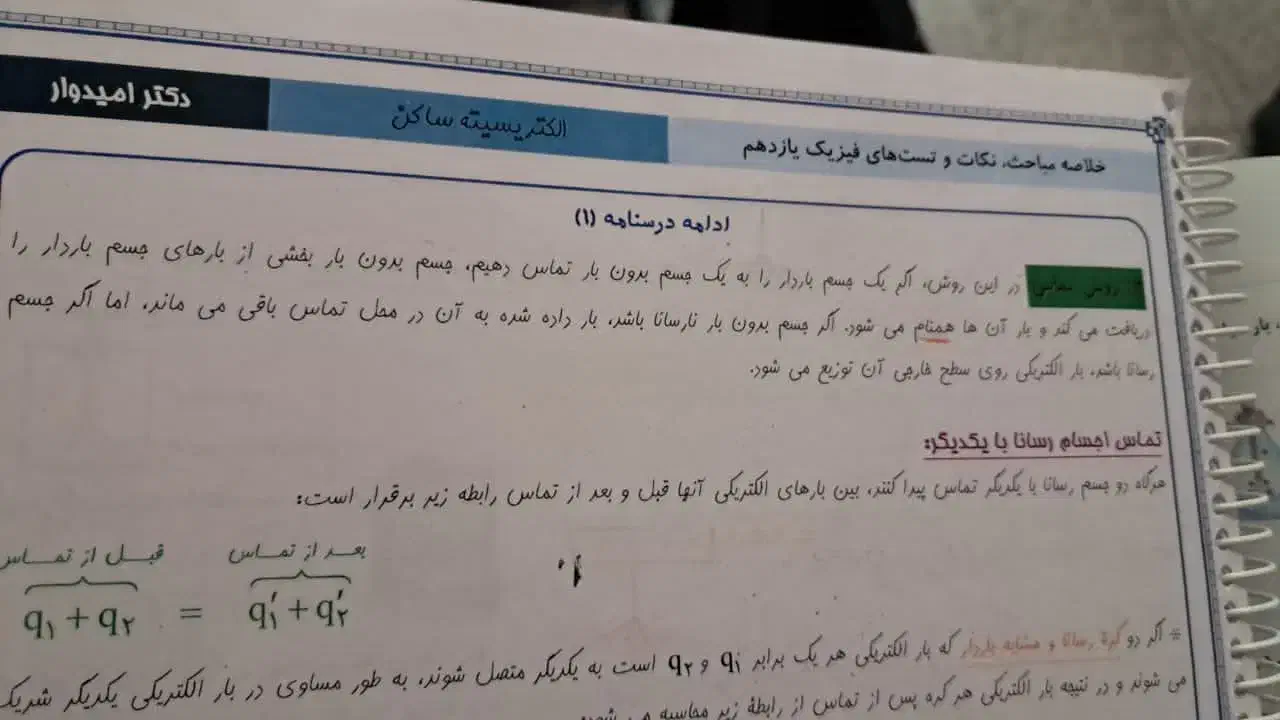 خلاصه مباحث، نکات و تست‌های فیزیک یازدهم
الکتریسیته ساکن
دکتر امیدوار
ادامه درسنامه (۱)
روش تماس در این روش، اگر یک جسم باردار را به یک جسم بدون بار تماس دهیم، جسم بدون بار بخشی از بارهای جسم باردار را
دریافت می کند و بار آن ها همنام می شود. اگر جسم بدون بار نارسانا باشد، بار داده شده به آن در محل تماس باقی می ماند، اما اگر جسم
رسانا باشد، بار الکتریکی روی سطح خارجی آن توزیع می شود.
تماس اجسام رسانا با یکدیگر:
هرگاه دو جسم رسانا با یکدیگر تماس پیدا کنند، بین بارهای الکتریکی آنها قبل و بعد از تماس رابطه زیر برقرار است:
قبل از تماس بعد از تماس
q۱ + q۲ = q′۱ + q′۲
* اگر دو کرهٔ رسانا و مشابه باردار که بار الکتریکی هر یک برابر q۱ و q۲ است به یکدیگر متصل شوند، به طور مساوی در بار الکتریکی یکدیگر شریک
می شوند و در نتیجه بار الکتریکی هر کره پس از تماس از رابطهٔ زیر محاسبه می شود: